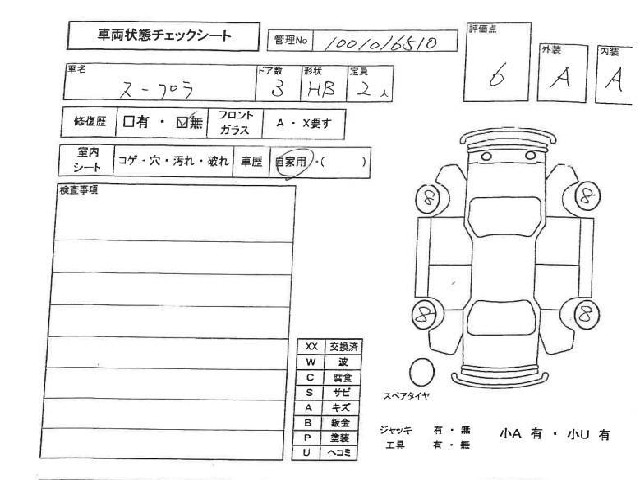 車両状態チェックシート
管理No 1001016510
評価点 6
外装 A
内装 A
車名 スープラ
ドア数 3
形状 HB
定員 2人
修復歴 □有・☑無
フロントガラス A・X要す
室内シート コゲ・穴・汚れ・破れ
車歴 自家用・( )
検査事項
8 8
8 8
XX 交換済
W 波
C 腐食
S サビ
A キズ
B 鈑金
P 塗装
U ヘコミ
スペアタイヤ
ジャッキ 有・無
工具 有・無
小A 有・小U 有